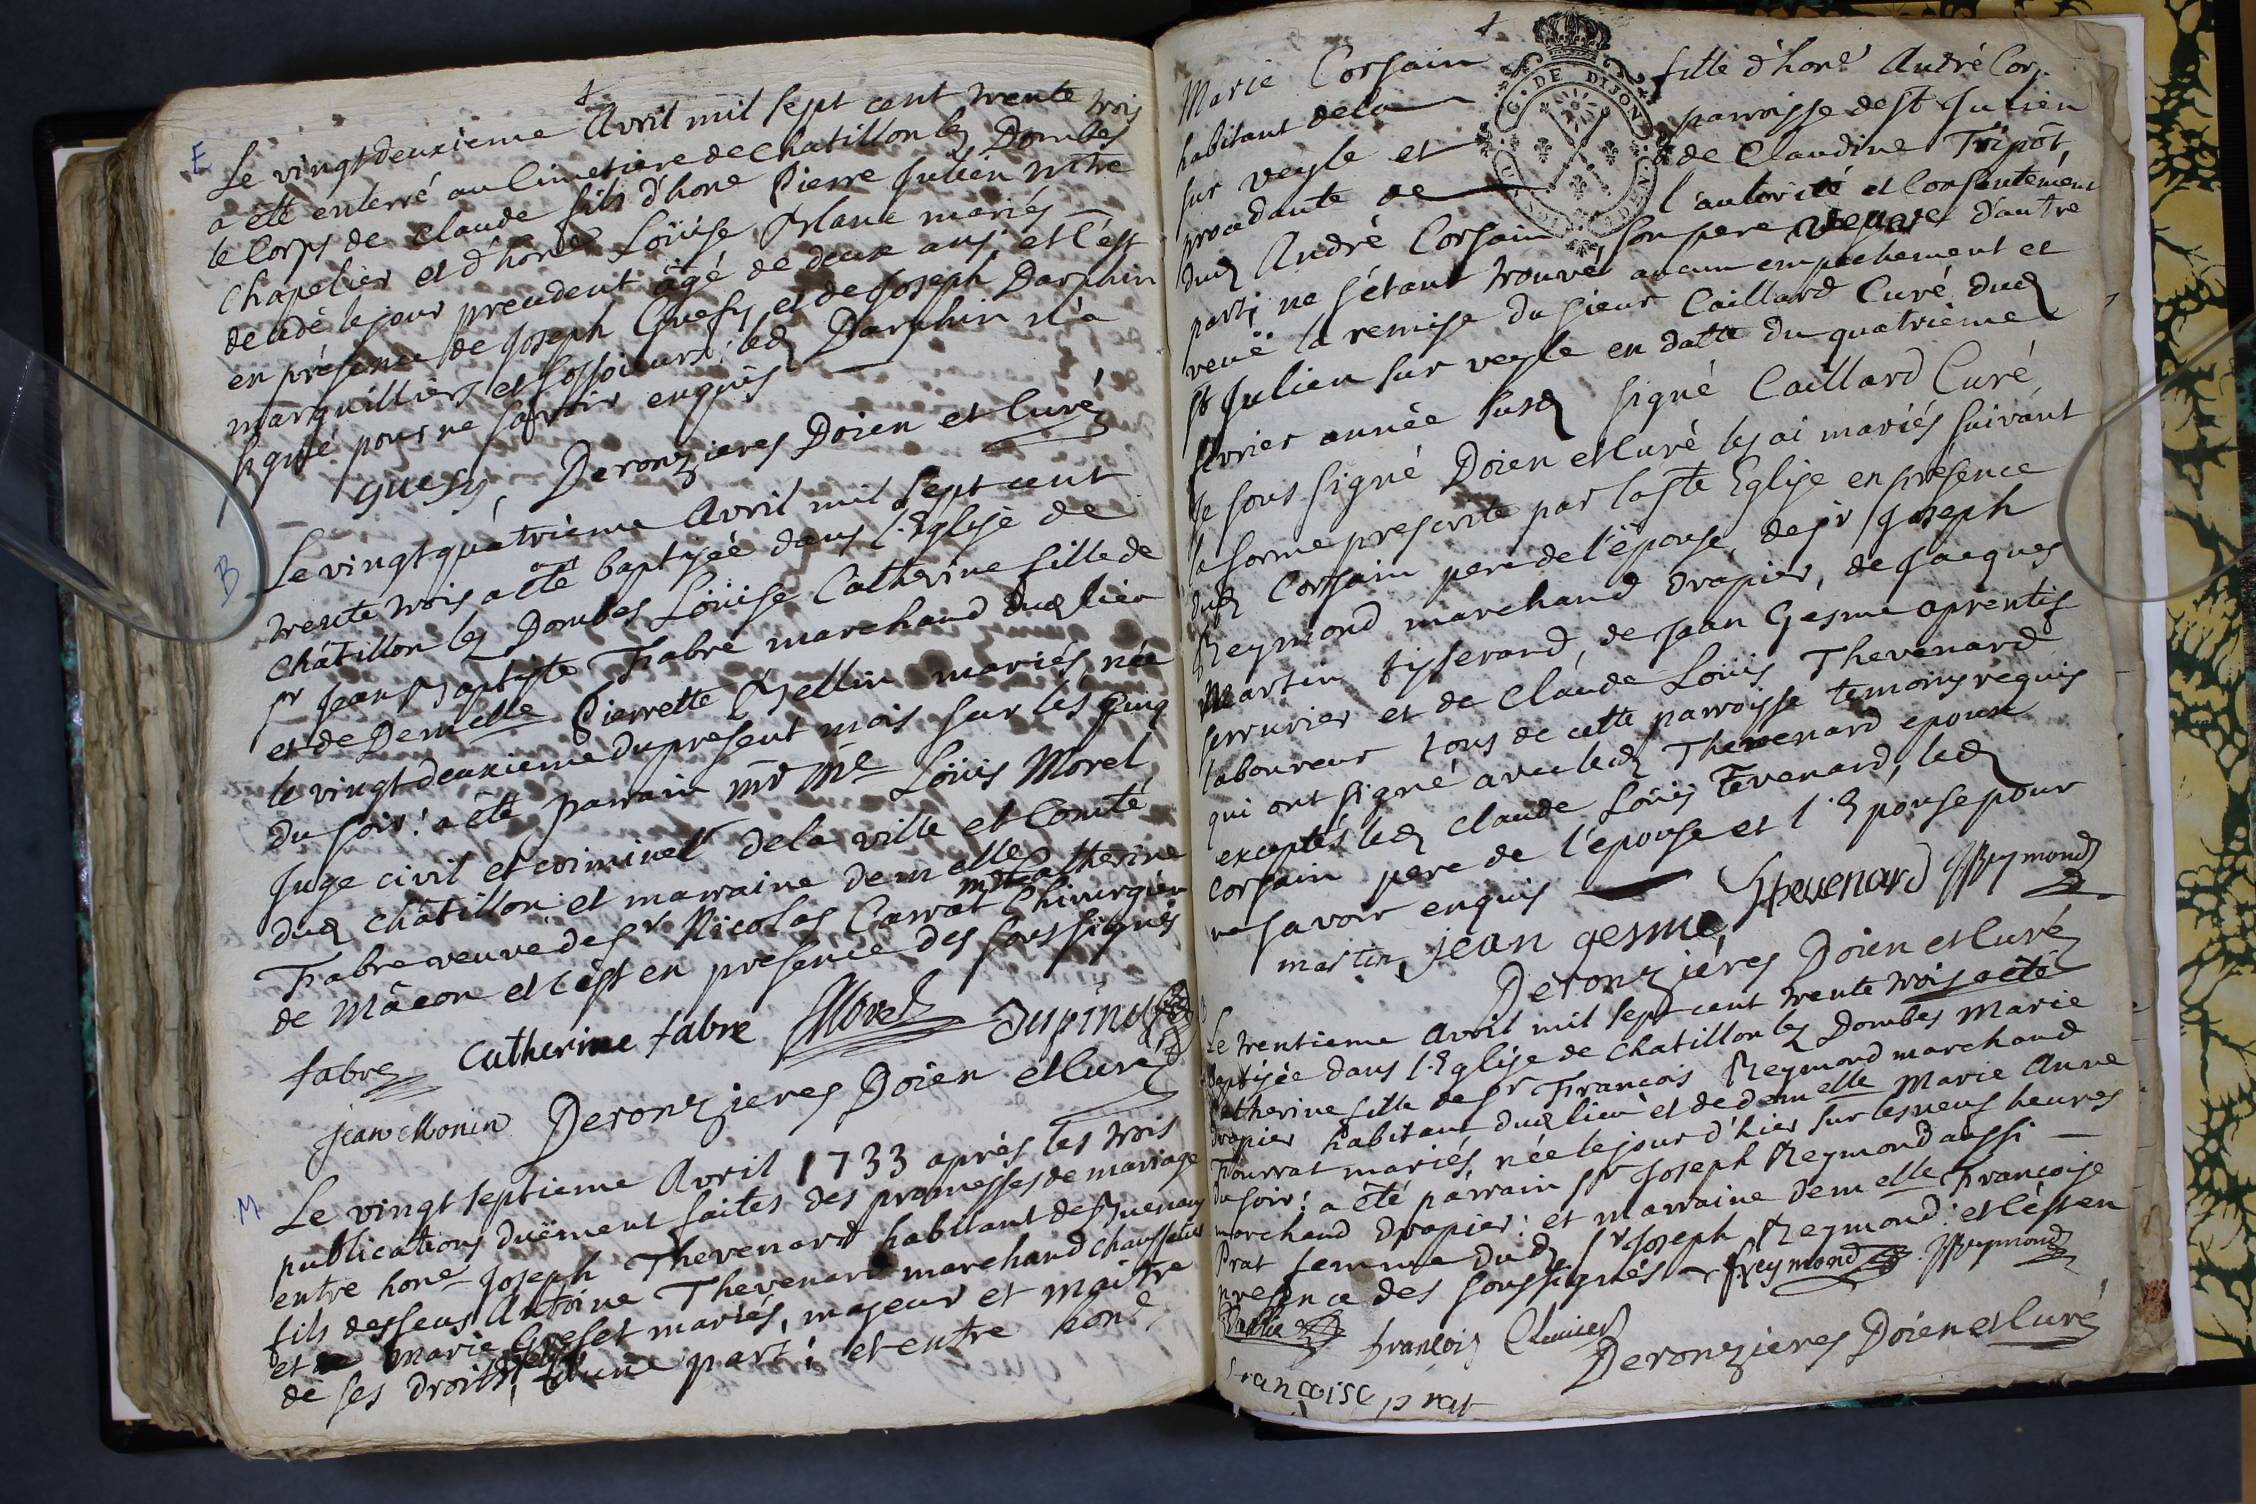 E
Le vingtdeuxieme Avril mil sept cent trente trois
a été enterré au Cimetiere de Chatillon lez Dombes
le Corps de Claude fils d'hone Pierre Julien ntre
Chapelier et d'hone Loüise mariés
decedé le jour precedent âgé de deux ans et c'est
en présence de Joseph Guesy, et de Joseph Darphin
marguilliers et fossoieurs: led Darphin n'a
signé pour ne savoir enquis
guesy, Deronzieres Doien et Curé
B
Le vingtquatrieme Avril mil sept cent
trente trois a été baptisée dans l'Eglise de
Châtillon lez Dombes Loüise Catherine fille de
sr Jean Baptiste Fabre marchand dud lieu
et de Demelle Pierrette mariés, née
le vingt deuxieme du present mois sur les cinq
du soir: a été parrain mr Me Loüis Morel
Juge civil et criminel de la ville et Comté
dud Châtillon, et marraine demelle Catherine
Fabre veuve de sr Nicolas Carrat me Chirurgien
de Mâcon et c'est en presence des sous signés
fabre Catherine fabre Morel Dupin
jean Monin Deronzieres Doien et Curé
M
Le vingt septieme Avril 1733 aprés les trois
publications düement faites des promesses de mariage
entre hone Joseph Thevenard habitant de
fils deffeus Antoine Thevenard marchand
et Marie Grefet mariés, majeur et maitre
de ses droits, d'une part; et entre hone
Marie Corsain fille d'hone André Cor
habitant de la parroisse de St Julien
sur veyle et de Claudine Tripôt,
procedante de l'autorité et Consentement
dud André Corsain, son pere d'autre
part; ne s'étant trouvé aucun empechement et
veuë la remise du sieur Caillard Curé dud
St Julien sur veyle en datte du quatrieme
fevrier année susd signé Caillard Curé,
Je sous signé Doien et Curé les ai mariés suivant
la forme prescrite par la Ste Eglise en présence
dud Corsain pere de l'épouse, de sr Joseph
Reymond marchand drapier, de Jacques
Martin tisserand, de Jean Gesme aprentif
serrurier et de Claude Loüis Thevenard
laboureur tous de cette parroisse temoins requis
qui ont signé avec led Thevenard epoux
exceptés led Claude Loüis Tevenard, led
Corsain pere de l'épouse et l'Epouse pour
ne savoir enquis Thevenard JReymond
martin, jean gesme,
Deronziéres Doien et Curé
Le trentieme Avril mil sept cent trente trois a été
baptisée dans l'Eglise de Chatillon lez Dombes Marie
Catherine fille de sr François Reymond marchand
drapier habitant dud lieu et de demelle Marie Anne
Fourrat mariés, née le jour d'hier sur les neuf heures
du soir: a été parrain sr Joseph Reymond aussi
marchand drapier: et marraine demelle Françoise
Prat femme dud sr Joseph Reymond: et c'est en
presence des soussignés freymond JReymond
françois
Deronzieres Doien et Curé
françoise prat
G. DE DIJON